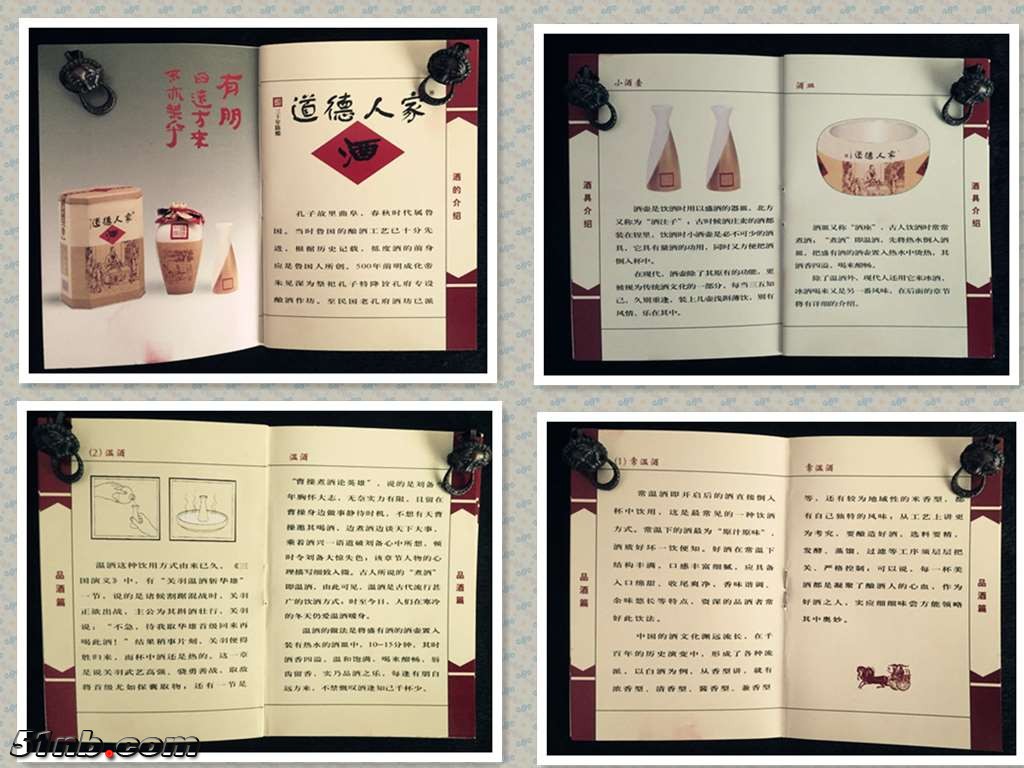 有朋
自远方来
不亦乐乎
道德人家
酒
道德人家
二十年陈酿
酒
孔子故里曲阜,春秋时代属鲁
国。当时鲁国的酿酒工艺已十分先
进,根据历史记载,低度酒的前身
应是鲁国人所创。500年前明成化帝
朱见深为祭祀孔子特降旨孔府专设
酿酒作坊。至民国老孔府酒坊已派
酒的介绍
小酒壶
酒壶是饮酒时用以盛酒的器皿,北方
又称为“酒注子”;古时候酒庄卖的酒都
装在锃里,饮酒时小酒壶是必不可少的酒
具,它具有量酒的功用,同时又方便把酒
倒入杯中。
在现代,酒壶除了其原有的功能,更
被视为传统酒文化的一部分,每当三五知
己,久别重逢,装上几壶浅斟薄饮,别有
风情、乐在其中。
酒具介绍
酒皿
道德人家
酒皿又称“酒座”,古人饮酒时常常
煮酒,“煮酒”即温酒,先将热水倒入酒
皿,把盛有酒的酒壶置入热水中烫热,其
酒香四溢,喝来酣畅。
除了温酒外,现代人还用它来冰酒,
冰酒喝来又是另一番风味,在后面的章节
将有详细的介绍。
酒具介绍
(2)温酒
温酒这种饮用方式由来已久,《三
国演义》中,有“关羽温酒斩华雄”
一节,说的是诸候割踞混战时,关羽
正欲出战,主公为其斟酒壮行,关羽
说:“不急,待我取华雄首级回来再
喝此酒!”结果稍事片刻,关羽便得
胜归来,而杯中酒还是热的。这一章
是说关羽武艺高强、骁勇善战,取敌
将首级尤如探囊取物;还有一节是
品酒篇
温酒
“曹操煮酒论英雄”,说的是刘备当
年胸怀大志,无奈实力有限,且留在
曹操身边做事静待时机,不想有天曹
操邀其喝酒,边煮酒边谈天下大事,
乘着酒兴一语道破刘备心中所想,顿
时令刘备大惊失色,该章节人物的心
理描写细致入微。古人所说的“煮酒”
即温酒,由此可见,温酒是古代流行甚
广的饮酒方式;时至今日,人们在寒冷
的冬天仍爱温酒暖身。
温酒的做法是将盛有酒的酒壶置入
装有热水的酒皿中,10-15分钟,其时
酒香四溢,温和饱满,喝来酣畅,唇
齿留香,实乃品酒之乐,每逢有朋自
远方来,不禁慨叹酒逢知己千杯少。
品酒篇
(1)常温酒
常温酒即开启后的酒直接倒入
杯中饮用,这是最常见的一种饮酒
方式。常温下的酒最为“原汁原味”,
酒质好坏一饮便知。好酒在常温下
结构丰满,口感丰富细腻,应具备
入口绵甜,收尾爽净,香味谐调、
余味悠长等特点,资深的品酒者常
好此饮法。
中国的酒文化渊远流长,在千
百年的历史演变中,形成了各种流
派,以白酒为例,从香型讲,就有
浓香型、清香型、酱香型、兼香型
品酒篇
常温酒
等,还有较为地域性的米香型,都
有自己独特的风味;从工艺上讲更
为考究,要酿造好酒,选料要精,
发酵、蒸馏、过滤等工序须层层把
关、严格控制;可以说,每一杯美
酒都是凝聚了酿酒人的心血,作为
好酒之人,实应细细味尝方能领略
其中奥妙。
品酒篇
51nb.com